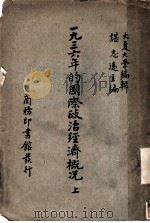 大夏大學編輯
諶志遠主編
一九三六年的國際政治經濟概況 上
商務印書館發行